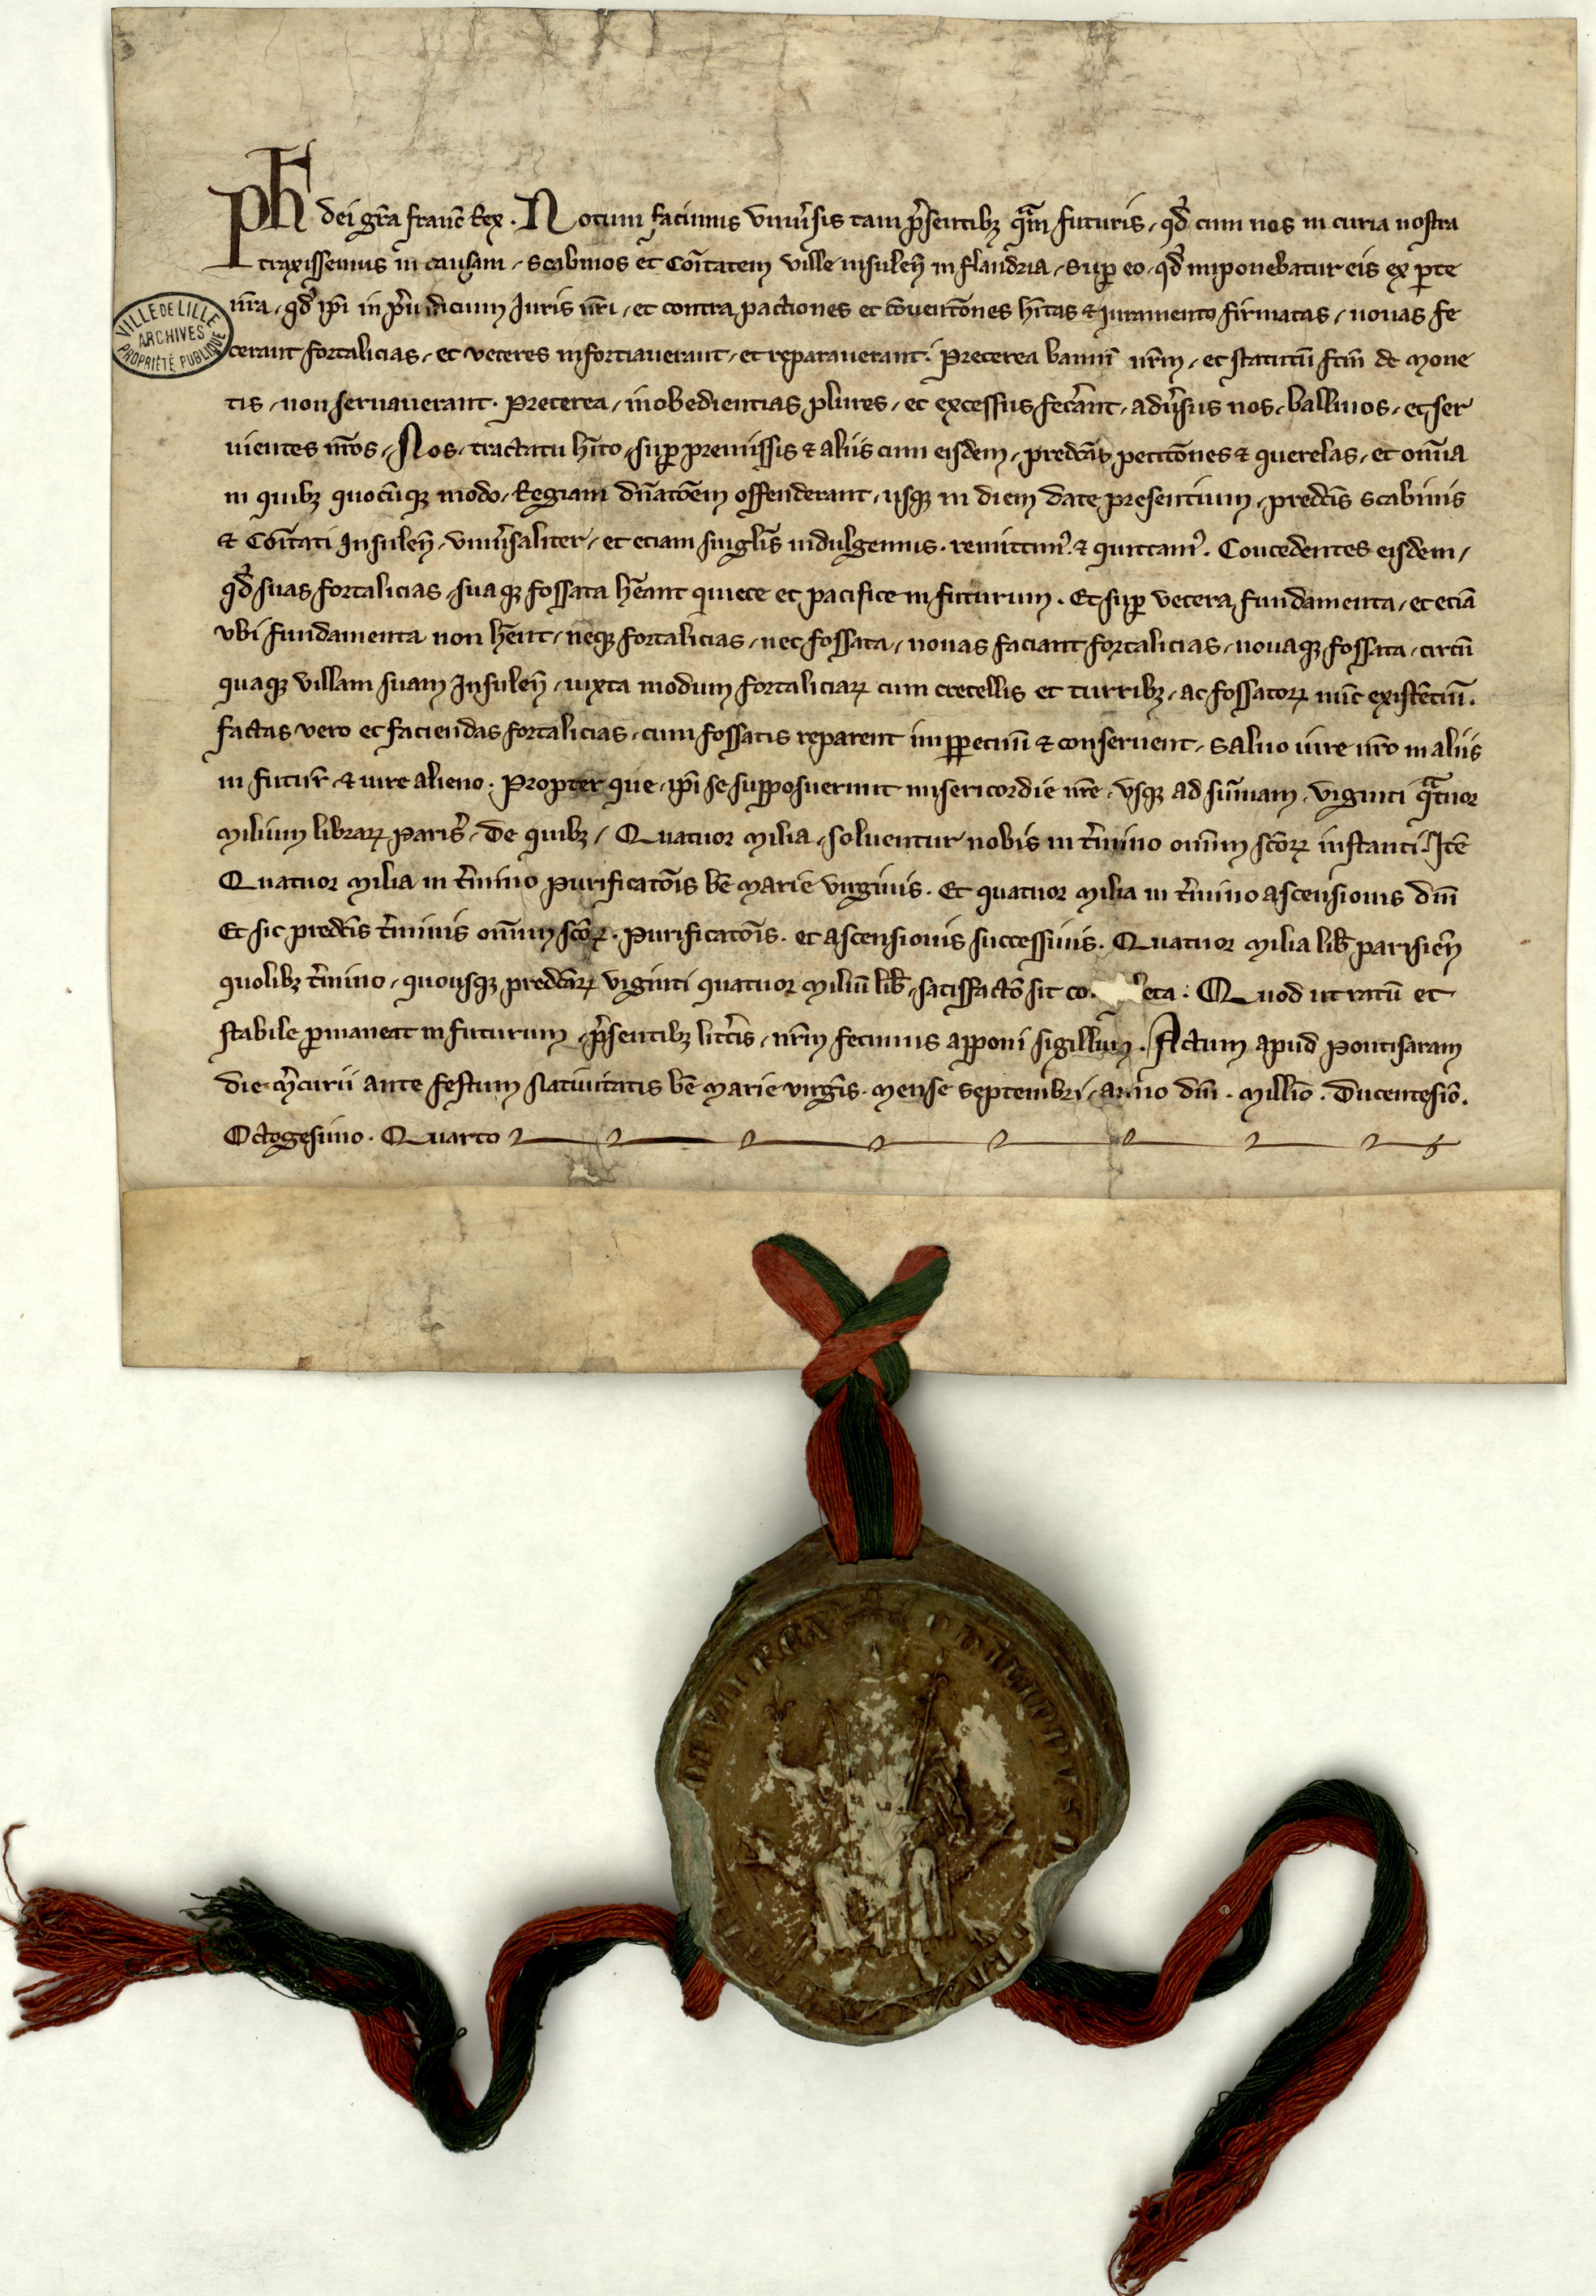 Ph dei gr̄a franc̄ Rex. Notum facimus vniũsis tam p̃sentibȝ q̃m futuris, qd̃ cum nos in curia nostra
traxissemus in causam, scabinos et Cōitatem ville insuleñ in flandria, sup eo, qd̃ imponebatur eis ex pte
nr̄a, qd̃ ip̄i in p̃iudicium Iuris nr̄i, et contra pactiones et cōuentōnes hītas & iuramento firmatas, nouas fe
cerant fortalicias, et veteres infortiauerant, et reparauerant. Preterea bannū nr̄m, et statutū fc̄m de Mone
tis, non seruauerant. Preterea, inobedientias plures, et excessus fecãnt, adũsus nos, balliuos, et ser
uientes nr̄os, Nos, tractatu hīto, sup premissis & aliis cum eisdem, predc̄as petitōnes & querelas, et om̄ia
in quibȝ quocūqȝ modo, Regiam dn̄atōem offenderant, usqȝ in diem date presentium, predc̄is scabinis
& Cōitati Insuleñ, vniũsaliter, et etiam singlīs indulgemus. remittim᾽. & quittam᾽. Concedentes eisdem,
qd̃ suas fortalicias, suaqȝ fossata hēant quiete et pacifice in futurum. Et sup vetera fundamenta, et etiā
vbi fundamenta non hēnt, neqȝ fortalicias, nec fossata, nouas faciant fortalicias, nouaqȝ fossata, circū
quaqȝ villam suam Insuleñ, iuxta modum fortaliciaꝝ cum cretellis et turribȝ, ac fossatoꝝ nūc existētiū.
factas vero et faciendas fortalicias, cum fossatis reparent inppetuū & conseruent, saluo iure nr̄o in aliis
in futur̄, & iure alieno. Propter que, ip̄i se supposuerunt misericordie nr̄e, vsqȝ ad sum̄am, viginti q̃tuor
Milium libraꝝ paris᾽, De quibȝ, Quatuor Milia, soluentur nobis in t̃mino om̄ium sc̄oꝝ instanti. Itē
Quatuor Milia in t̃mino Purificatōis bē Marie virginis. Et quatuor Milia in t̃mino ascensionis dn̄i
Et sic predc̄is t̃minis om̄ium sc̄oꝝ. Purificatōis. et ascensionis successiuis. Quatuor Milia lib̄ parisieñ
quolibȝ t̃mino, quousqȝ predc̄aꝝ viginti quatuor Miliū lib̄, satisfactō sit co eta. Quod ut ratū et
stabile pmaneat in futurum, p̃sentibȝ litt̃is, nr̄m fecimus apponi sigillum. Actum apud Pontisaram
die m̃curii ante festum Natiuitatis bē Marie virgīs. Mense septembri, anno dn̄i. Millio. Ducentesiō.
Octogesimo. Quarto
VILLE DE LILLE
ARCHIVES
PROPRIÉTÉ PUBLIQUE